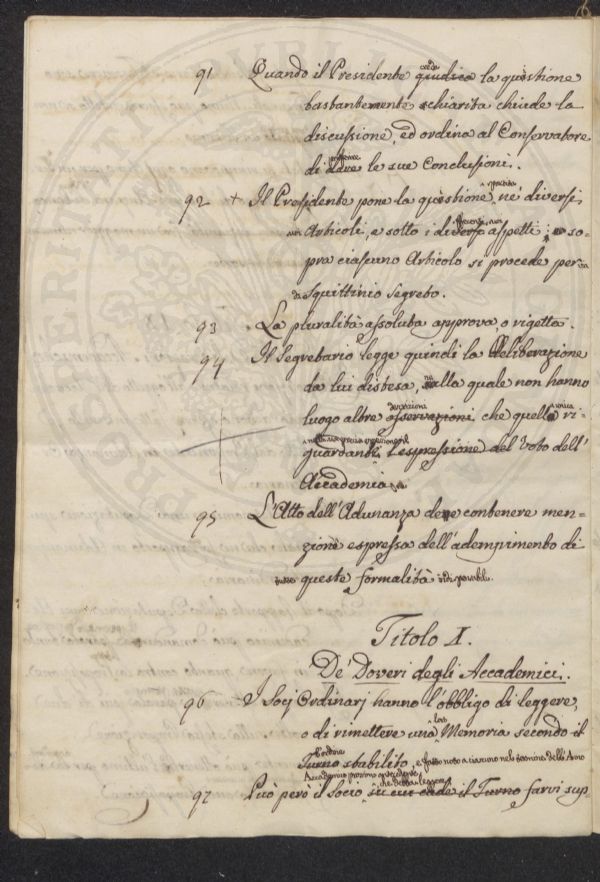 91 Quando il Presidente crede giudica la questione
bastantemente schiarita chiude la
discussione, ed ordina al Conservatore
di dare le sue Conclusioni.
92 + Il Presidente pone la questione, né diversi
Articoli, e sotto i diversi aspetti; so-
pra ciascuno Articolo si procede per
Squittinio segreto.
93 La pluralità assoluta approva, o rigetta.
94 Il Segretario legge quindi la Deliberazione
da lui distesa, alla quale non hanno
luogo altre osservazioni che quelle ri-
guardanti l'espressione del Voto dell'
Accademia
95 L'Atto dell'Adunanza deve contenere men-
zione espressa dell'adempimento di
tutte queste formalità indispensabili.
Titolo X.
De' Doveri degli Accademici.
96 I Socj Ordinarj hanno l'obbligo di leggere,
o di rimettere una Memoria secondo il
Turno stabilito, e fatto noto a ciascuno nel termine dell'Anno
Accademico
97 Può però il Socio su cui cade il Turno farvi sup-